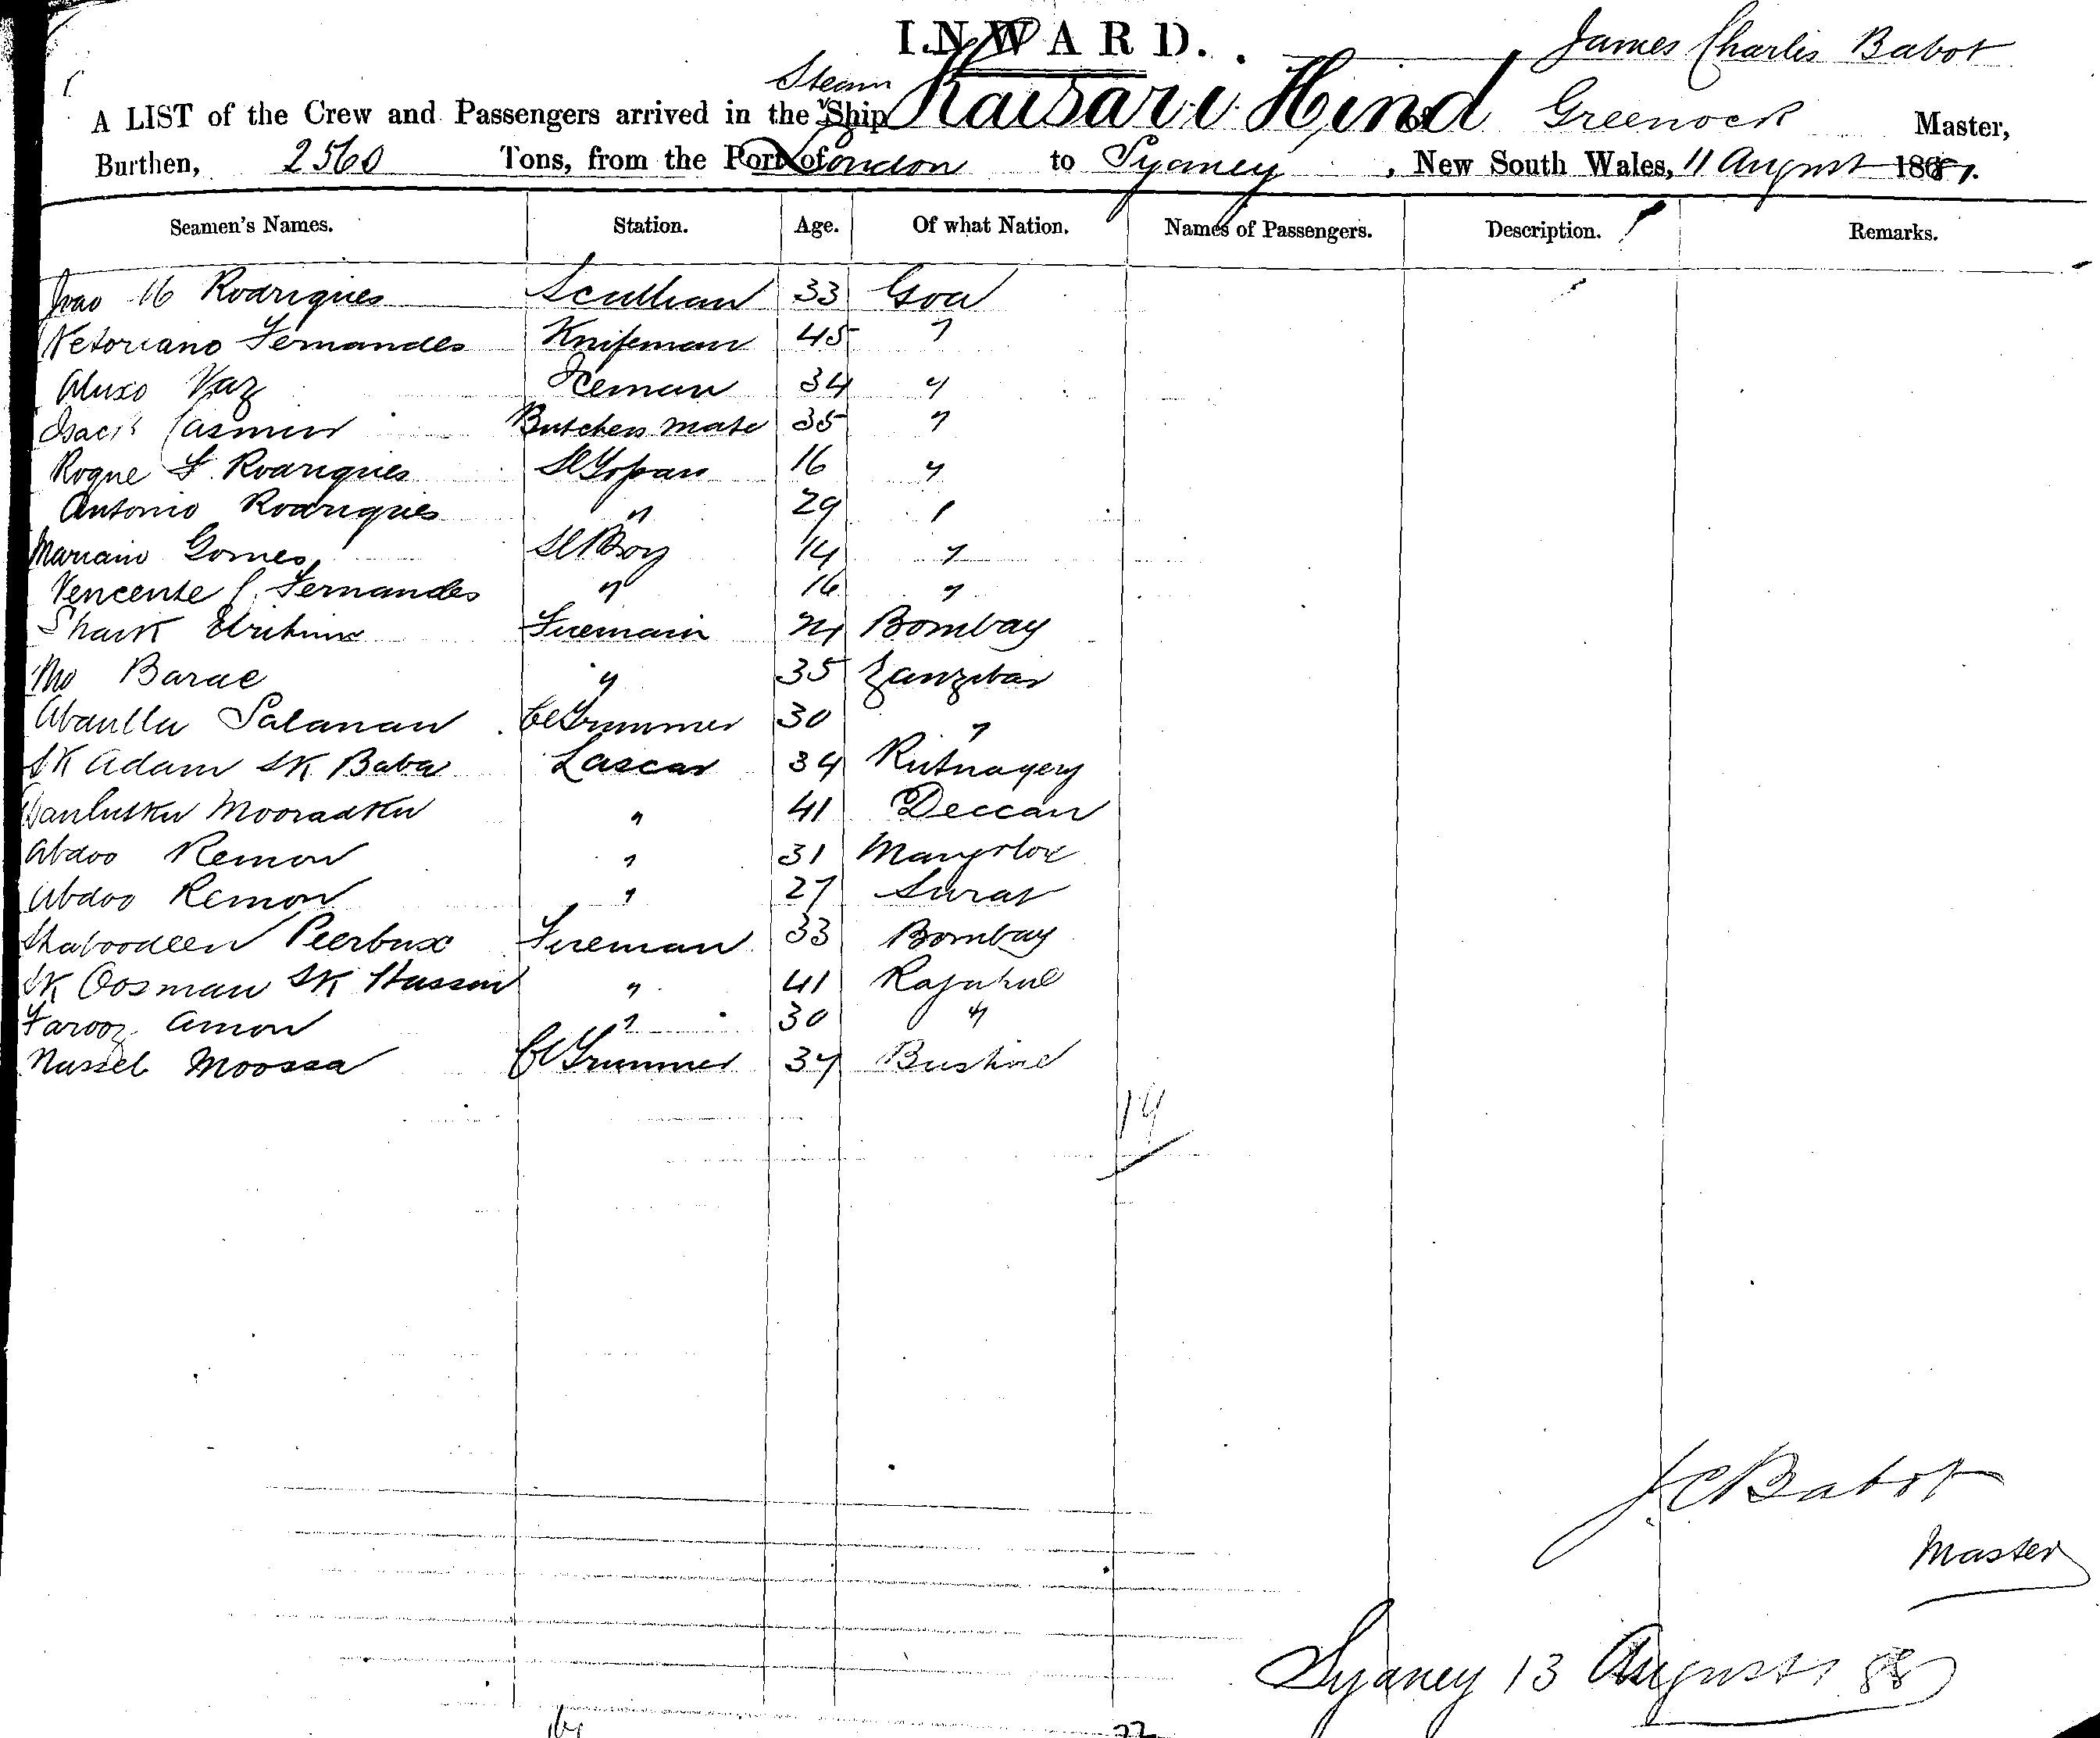 INWARD.
James Charles Babot
Steam
A LIST of the Crew and Passengers arrived in the Ship Kaisar i Hind of Greenock Master,
Burthen, 2560 Tons, from the Port of London to Sydney, New South Wales, 11 August 188
Seamen's Names. Station. Age. Of what Nation. Names of Passengers. Description. Remarks.
Joao Rodrigues Scullian 33 Goa
Vetoriano Fernandes Knifeman 45 "
Aluxo Vaz Iceman 34 "
Isack Casmir Butchers Mate 35 "
Roque F. Rodrigues Topass 16 "
Antonio Rodrigues " 29 "
Mariano Gomes Boy 14 "
Vencente C. Fernandes " 16 "
Shaik Ebrihim Fireman 24 Bombay
Mo Barac " 35 Zanzibar
Abdulla Salaman Cl Trimmer 30 "
SK Adam SK Baba Lascar 34 Rutnagery
Mooradku " 41 Deccan
Abdoo Remon " 31 Mangrlore
Abdoo Remon " 27 Surat
Shaboodeen Peerbux Fireman 33 Bombay
SK Oosman SK Hassan " 41
Farooz Amon " 30 "
Nasseb Moossa Cl Trimmer 34 Bushire
19
J.C. Babot
Master
Sydney 13 August 88